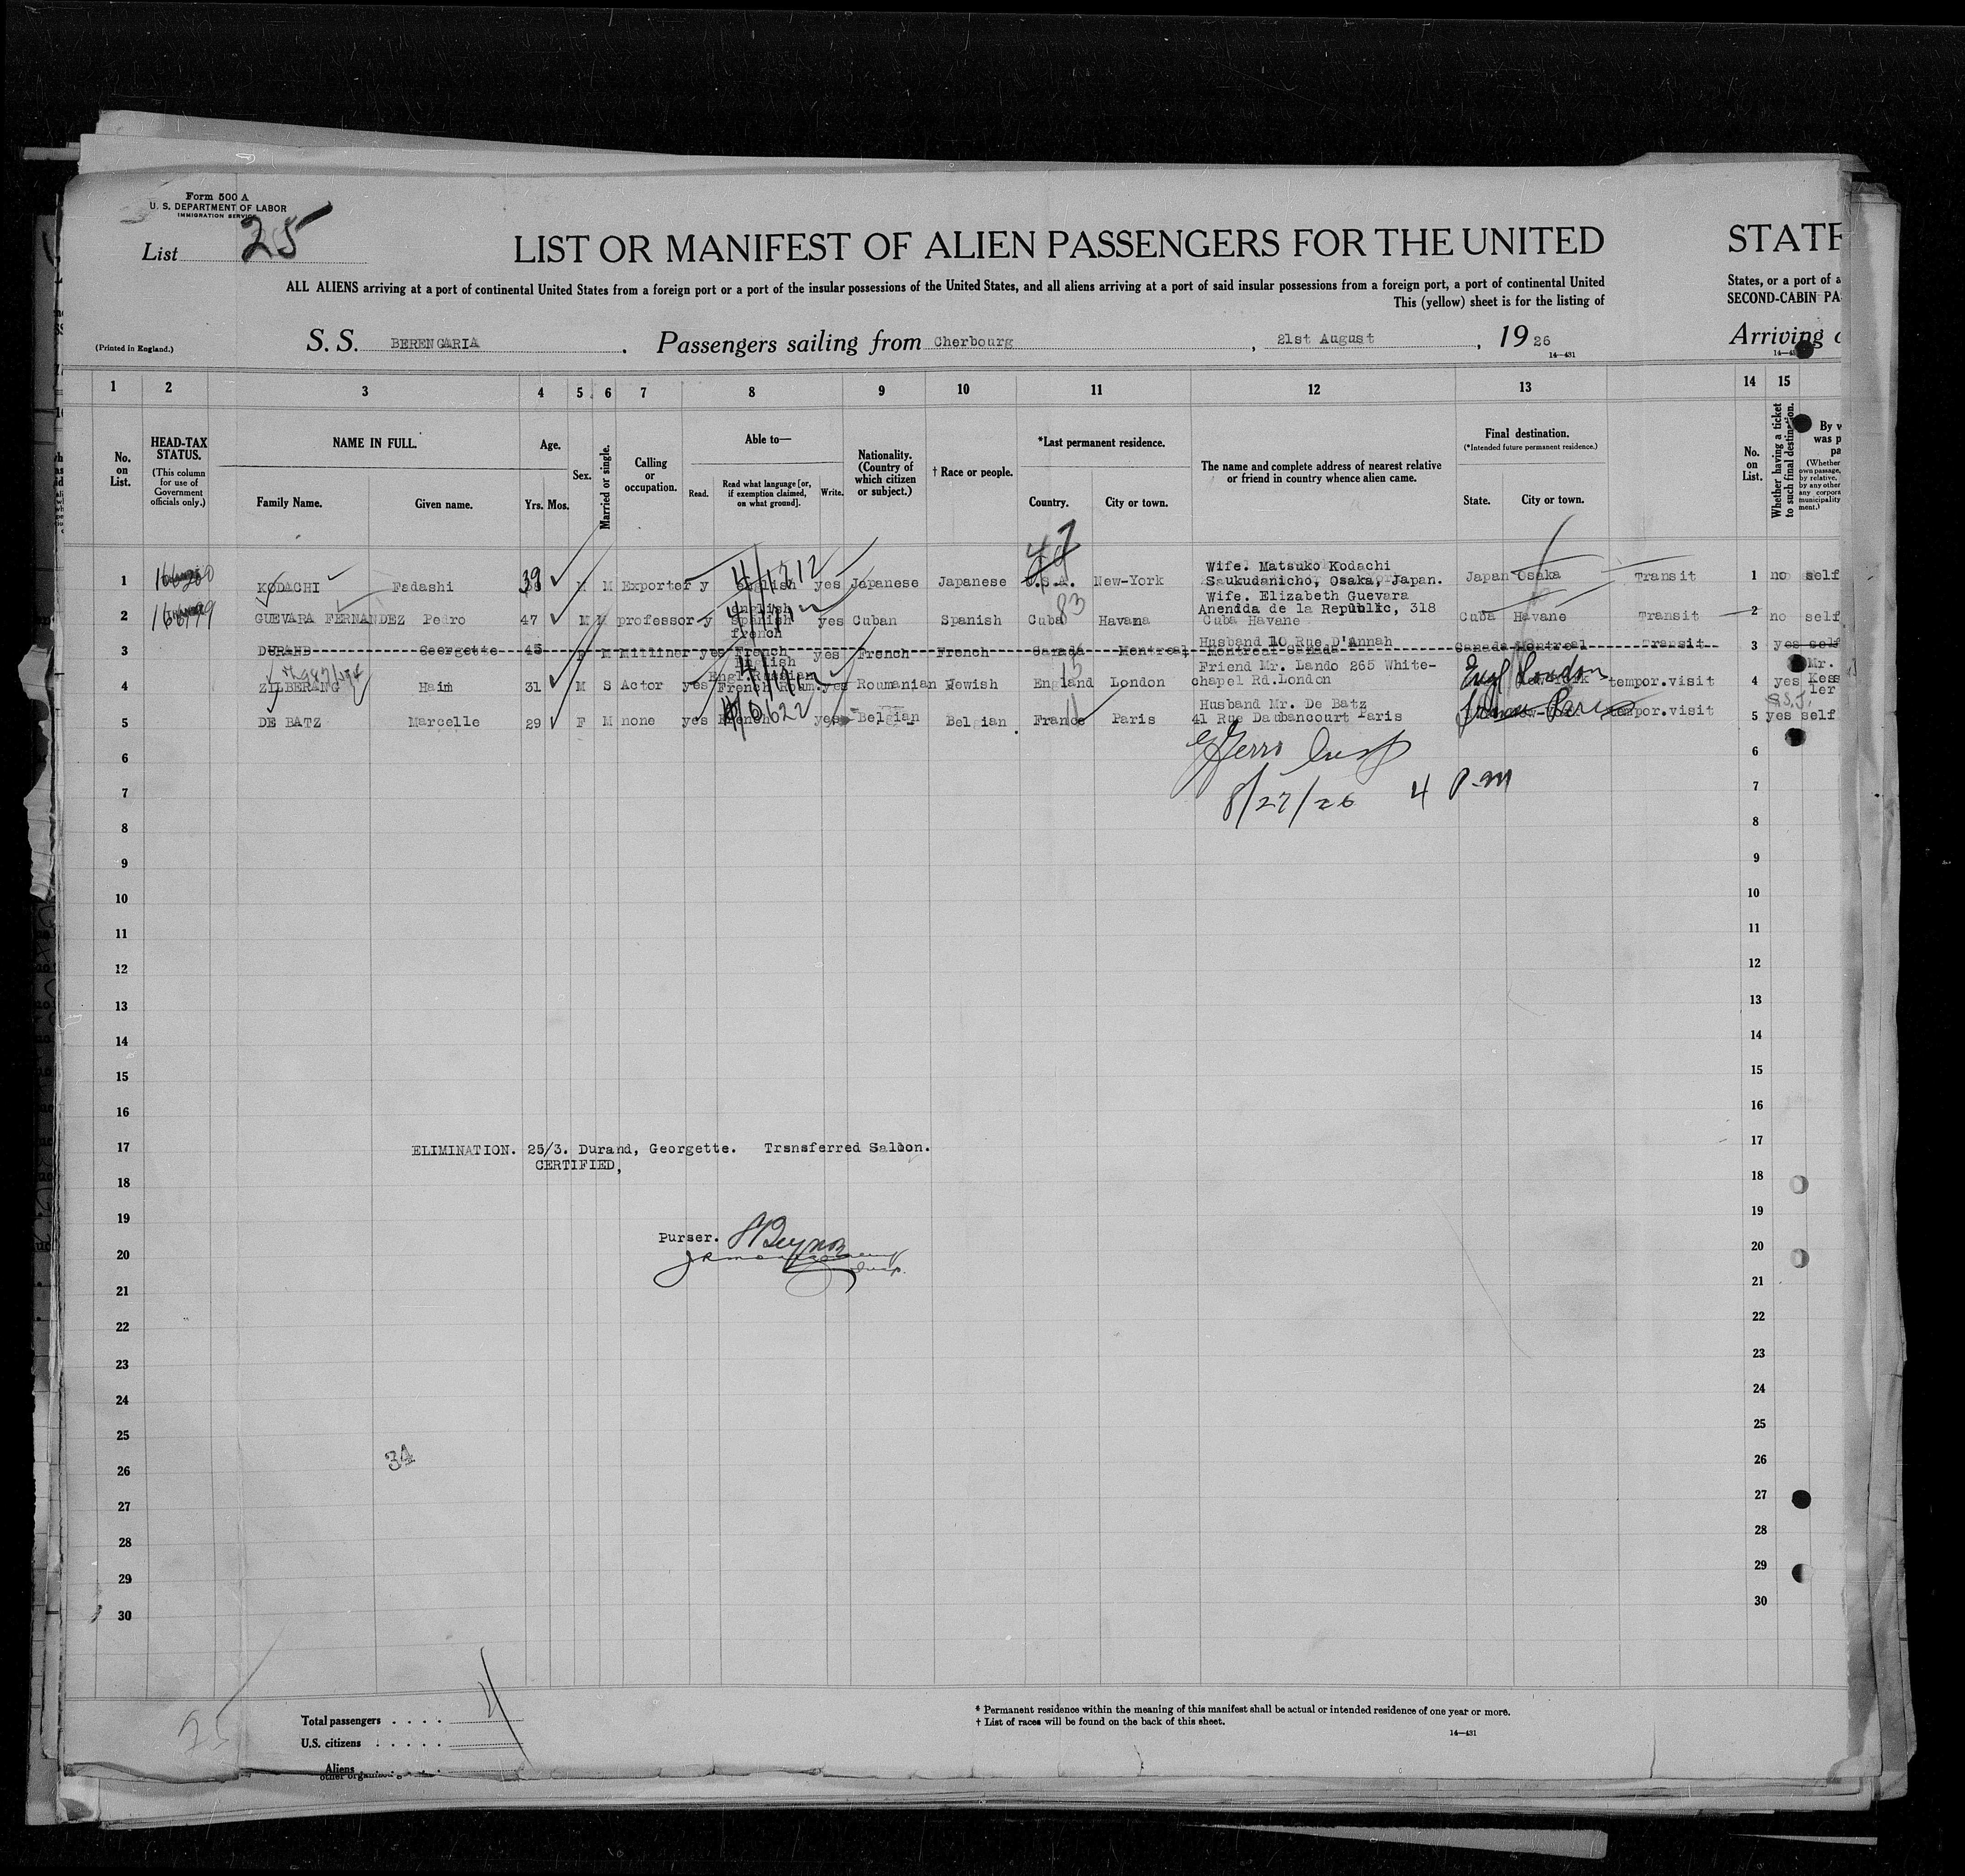 Form 500 A
U. S. DEPARTMENT OF LABOR
IMMIGRATION SERVICE
List 25
LIST OR MANIFEST OF ALIEN PASSENGERS FOR THE UNITED STATE
ALL ALIENS arriving at a port of continental United States from a foreign port or a port of the insular possessions of the United States, and all aliens arriving at a port of said insular possessions from a foreign port, a port of continental United States, or a port of a
This (yellow) sheet is for the listing of SECOND-CABIN PA
(Printed in England.)
S. S. BERENGARIA . Passengers sailing from Cherbourg , 21st August , 19 26 Arriving
14—431
1 2 3 4 5 6 7 8 9 10 11 12 13 14 15
No. on List.
HEAD-TAX STATUS.
(This column for use of Government officials only.)
NAME IN FULL.
Family Name. Given name.
Age.
Yrs. Mos.
Sex.
Married or single.
Calling or occupation.
Able to—
Read. Read what language [or, if exemption claimed, on what ground]. Write.
Nationality. (Country of which citizen or subject.)
† Race or people.
*Last permanent residence.
Country. City or town.
The name and complete address of nearest relative or friend in country whence alien came.
Final destination.
(*Intended future permanent residence.)
State. City or town.
No. on List.
Whether having a ticket to such final destination.
By w
was p
pa
(Whether
own passage,
by relative,
by any other
any corpora
municipality
ment.)
1 KODACHI Fadashi 39 M M Exporter y english yes Japanese Japanese U.S.A. New-York Wife. Matsuko Kodachi Saukudanicho, Osaka, Japan. Japan Osaka Transit 1 no self
2 GUEVARA FERNANDEZ Pedro 47 M M professor y english spanish french yes Cuban Spanish Cuba Havana Wife. Elizabeth Guevara Anenida de la Republic, 318 Cuba Havane Cuba Havane Transit 2 no self
3 DURAND Georgette 45 F M Milliner yes French English yes French French Canada Montreal Husband 10 Rue D'Annah Montreal Canada Canada Montreal Transit 3 yes self
4 ZILBERANG Haim 31 M S Actor yes Engl.Russian French Roum. yes Roumanian Jewish England London Friend Mr. Lando 265 White-chapel Rd.London Engl London tempor.visit 4 yes Mr. Kessler
5 DE BATZ Marcelle 29 F M none yes French yes Belgian Belgian France Paris Husband Mr. De Batz 41 Rue Daubancourt Paris Paris tempor.visit 5 yes self
6 6
7 8/27/26 4 P.M 7
8 8
9 9
10 10
11 11
12 12
13 13
14 14
15 15
16 16
17 ELIMINATION. 25/3. Durand, Georgette. Trsnsferred Saloon. 17
CERTIFIED,
18 18
19 19
Purser.
20 20
21 21
22 22
23 23
24 24
25 25
26 34 26
27 27
28 28
29 29
30 30
25
Total passengers . . . .
U.S. citizens . . . . .
Aliens
* Permanent residence within the meaning of this manifest shall be actual or intended residence of one year or more.
† List of races will be found on the back of this sheet.
14—431